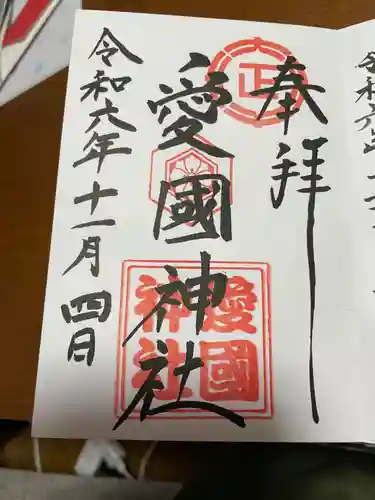 奉拝
正
愛國神社
愛國神社
令和六年十一月四日
令和六年十